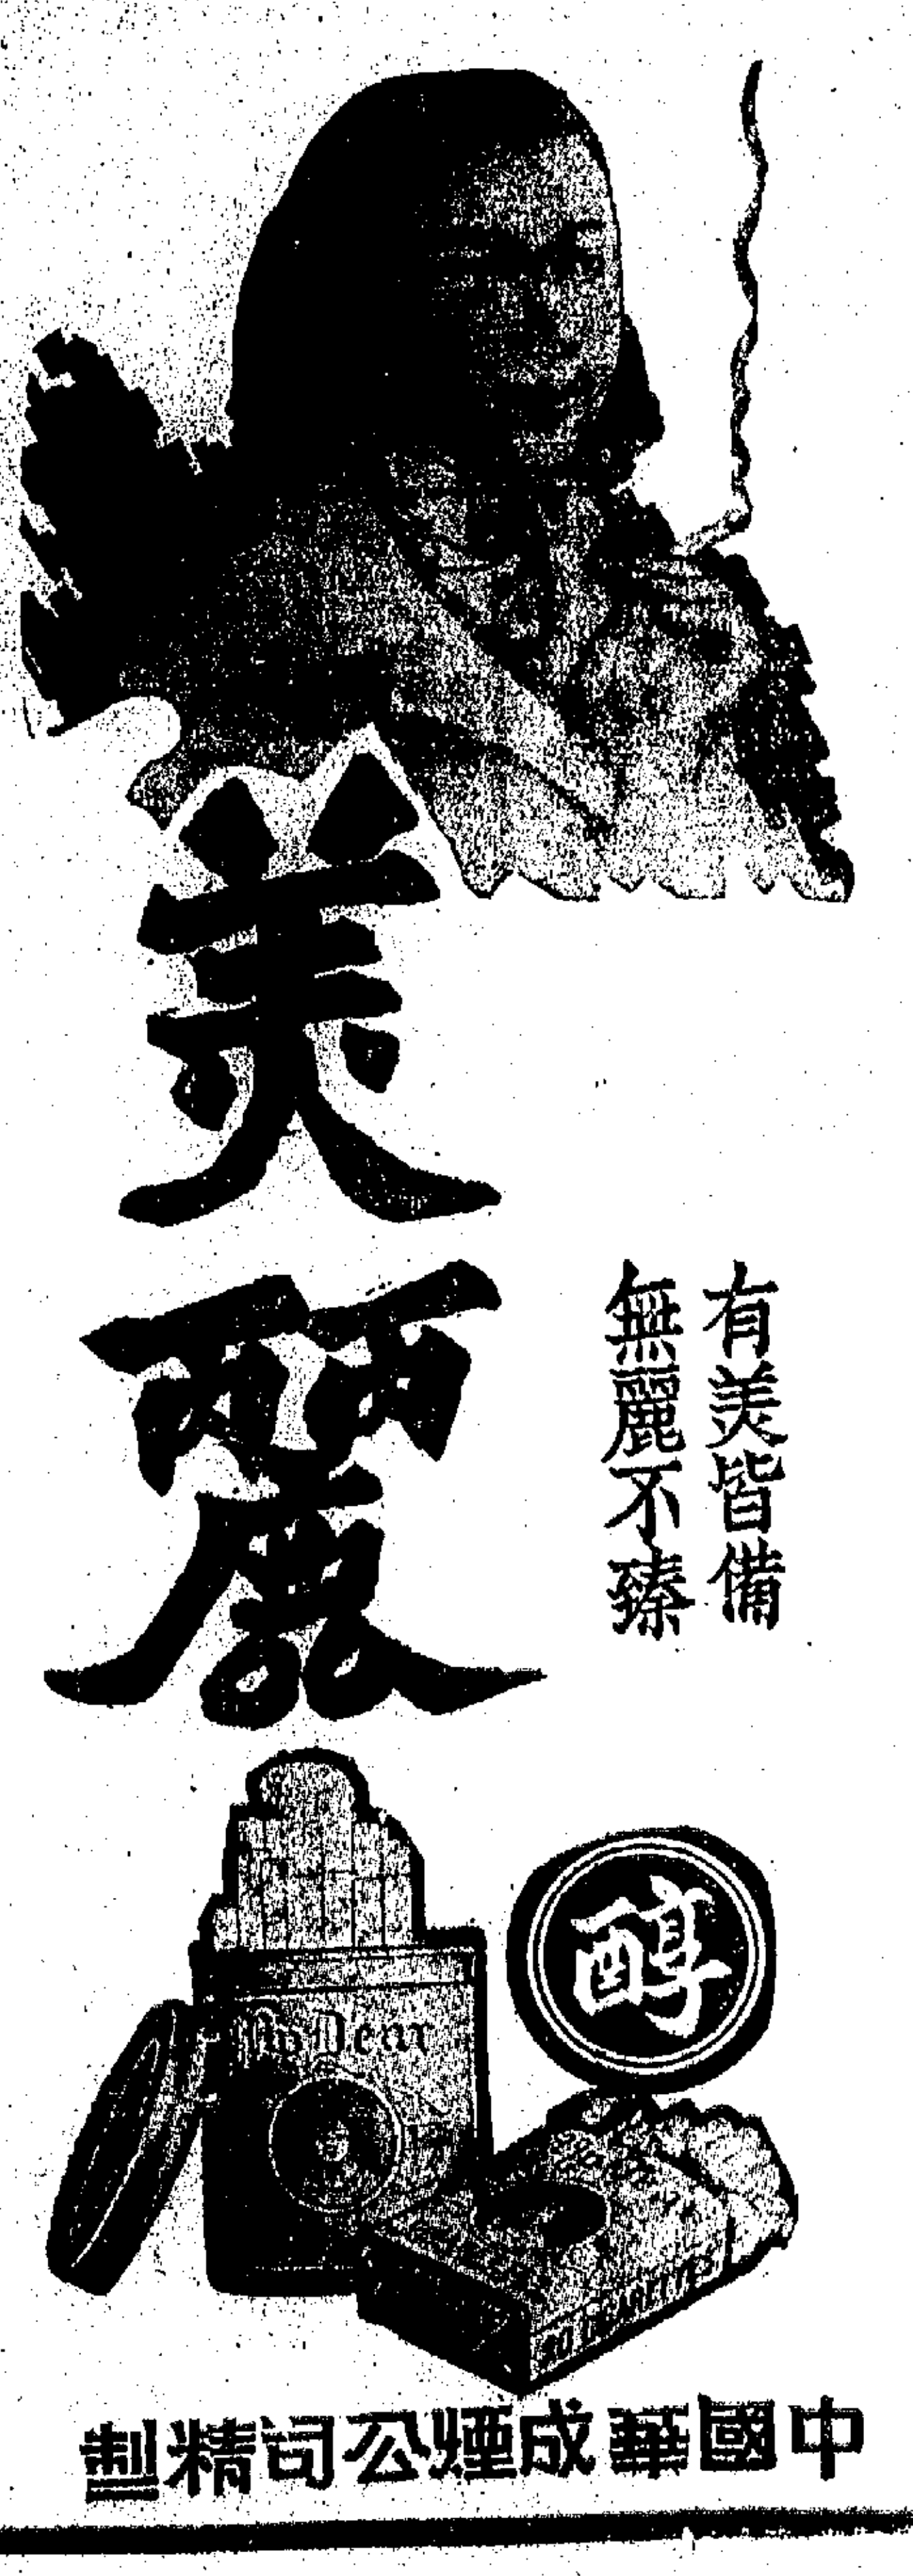 美麗
有美皆備
無麗不臻
醇
My Dear
中國華成煙公司精製